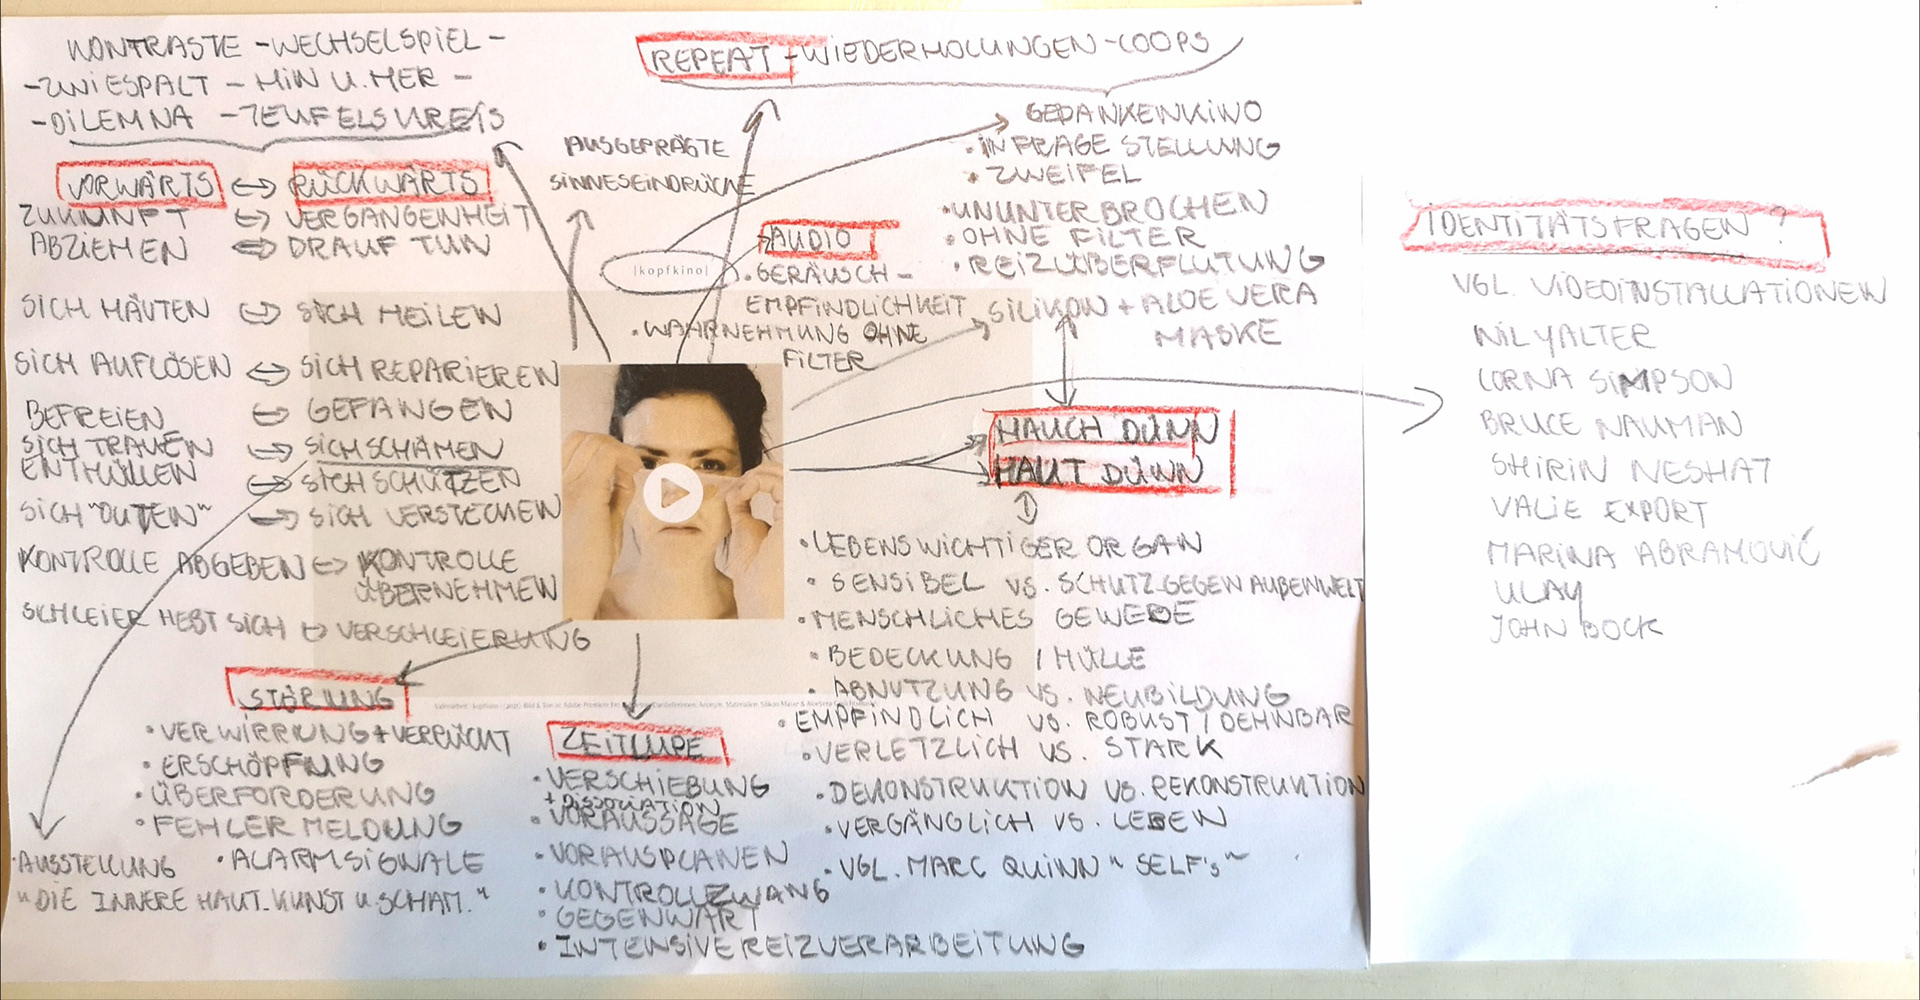 KONTRASTE - WECHSELSPIEL -
- ZWIESPALT - HIN U. HER -
- DILEMNA - TEUFELSKREIS
VORWÄRTS ↔ RÜCKWÄRTS
ZUKUNFT ↔ VERGANGENHEIT
ABZIEHEN ↔ DRAUF TUN
SICH HÄUTEN ↔ SICH HEILEN
SICH AUFLÖSEN ↔ SICH REPARIEREN
BEFREIEN ↔ GEFANGEN
SICH TRAUEN ↔ SICH SCHÄMEN
ENTHÜLLEN ↔ SICH SCHÜTZEN
SICH "OUTEN" ↔ SICH VERSTECKEN
KONTROLLE ABGEBEN ↔ KONTROLLE
ÜBERNEHMEN
SCHLEIER HEBT SICH ↔ VERSCHLEIERUNG
STÖRUNG
• VERWIRRUNG + VERRÜCKT
• ERSCHÖPFUNG
• ÜBERFORDERUNG
• FEHLERMELDUNG
• ALARMSIGNALE
AUSSTELLUNG
"DIE INNERE HAUT - KUNST U. SCHAM."
REPEAT - WIEDERHOLUNGEN - LOOPS
AUSGEPRÄGTE
SINNESEINDRÜCKE
|kopfkino|
AUDIO
• GERÄUSCH -
EMPFINDLICHKEIT
• WAHRNEHMUNG OHNE
FILTER
GEDANKENKINO
• IN FRAGE STELLUNG
• ZWEIFEL
• UNUNTERBROCHEN
• OHNE FILTER
• REIZÜBERFLUTUNG
SILIKON + ALOE VERA
MASKE
HAUCH DÜNN
HAUT DÜNN
• LEBENSWICHTIGER ORGAN
• SENSIBEL VS. SCHUTZ GEGEN AUßENWELT
• MENSCHLICHES GEWEBE
• BEDECKUNG / HÜLLE
• ABNUTZUNG VS. NEUBILDUNG
• EMPFINDLICH VS. ROBUST / DEHNBAR
• VERLETZLICH VS. STARK
• DEKONSTRUKTION VS. REKONSTRUKTION
• VERGÄNGLICH VS. LEBEN
• VGL. MARC QUINN "SELF's"
ZEITLUPE
• VERSCHIEBUNG
+ DISSOCIATION
• VORAUSSAGE
• VORAUSPLANEN
• KONTROLLZWANG
• GEGENWART
• INTENSIVE REIZVERARBEITUNG
IDENTITÄTSFRAGEN ?
VGL. VIDEOINSTALLATIONEN
NIL YALTER
LORNA SIMPSON
BRUCE NAUMAN
SHIRIN NESHAT
VALIE EXPORT
MARINA ABRAMOVIĆ
ULAY
JOHN BOCK